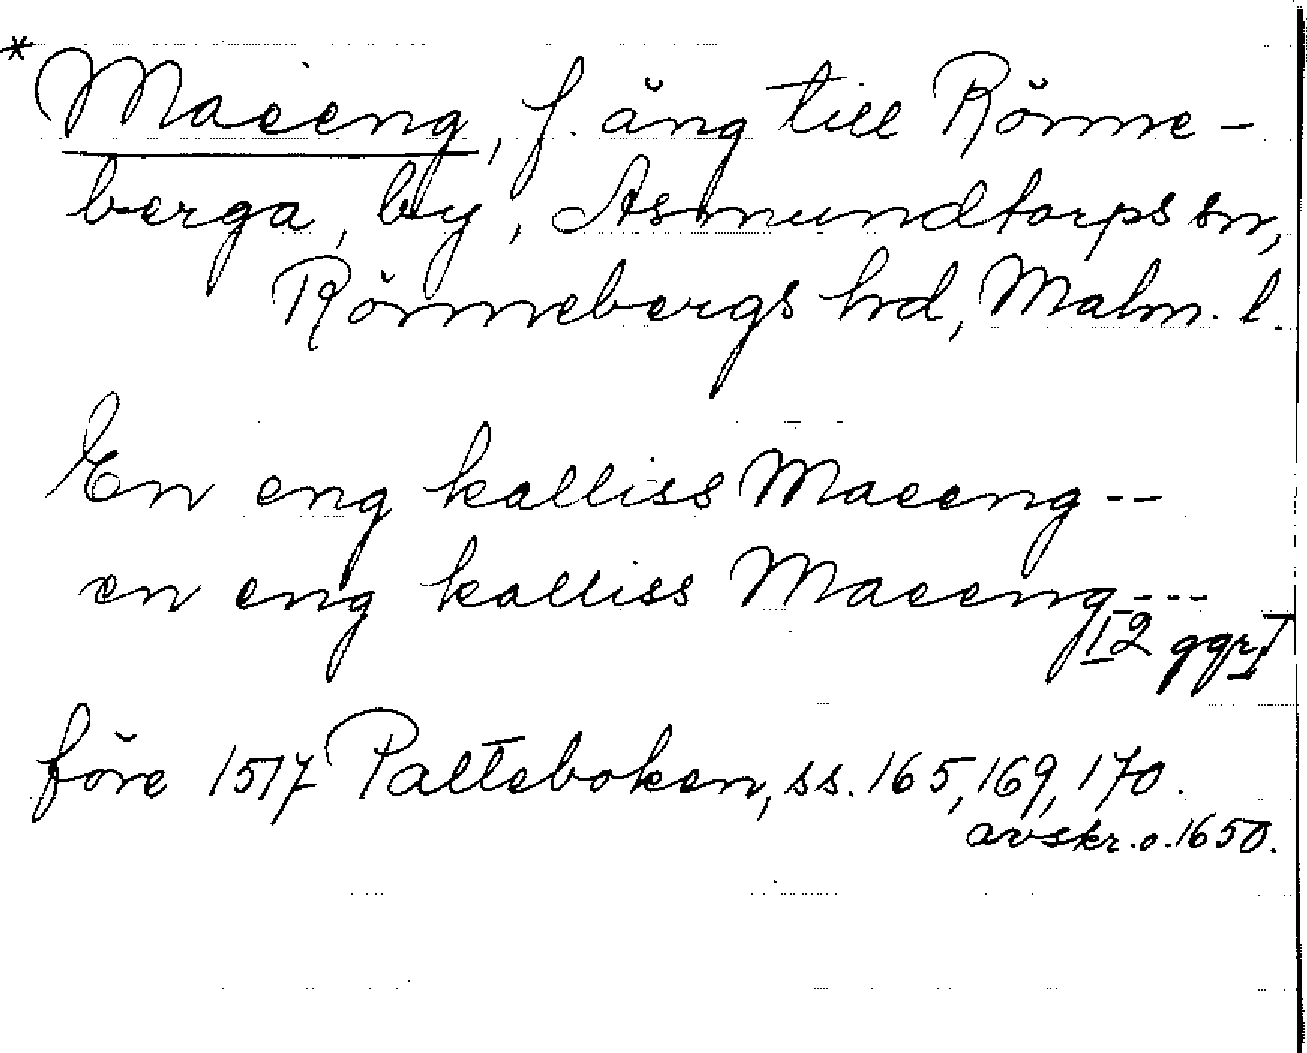 * Maeeng, f. äng till Rönne-
berga, by, Asmundtorps sn,
Rönnebergs hd, Malm. l.
En eng kalliss Maeeng --
en eng kalliss Maeeng ---
[2 ggr]
före 1517 Palteboken, ss. 165, 169, 170.
avskr. o. 1650.